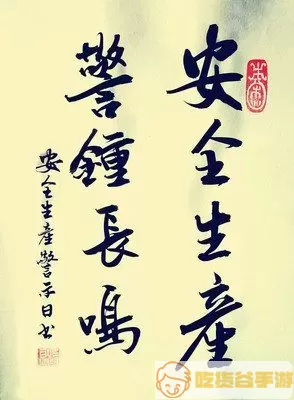 安全生產
警鍾長鳴
安全生產警示日书
吃货谷手游